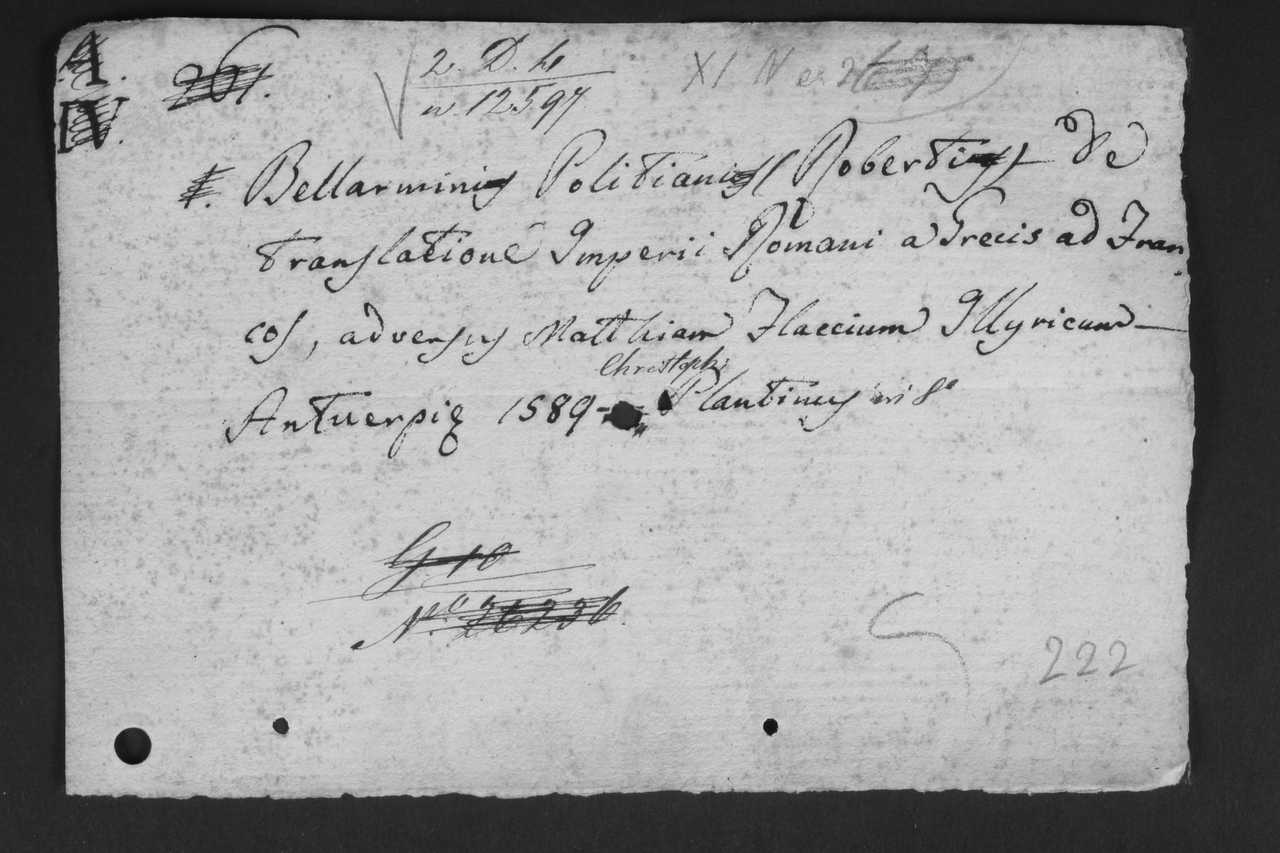 A.
IV.
261.
2. D. 4
n. 12597
XI N
Bellarminus Politianus (Robertus) De
Translatione Imperii Romani a Grecis ad Fran,
cos, adversus Matthiam Flaccium Illyricum
Christoph:
Antuerpiæ 1589 Plantinus in 8º
G 10
Nº 26236
222